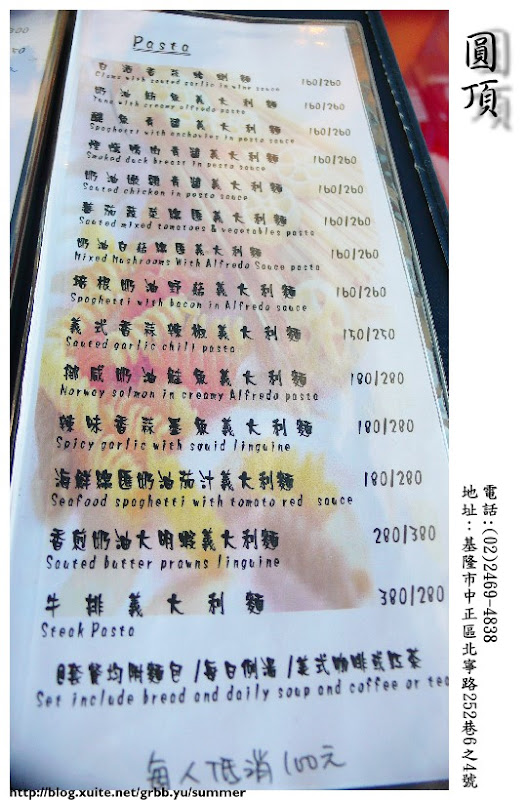 Pasta
白酒香蒜蛤蜊麵 160/260
Clams with sauted garlic in wine sauce
奶油鮪魚義大利麵 160/260
Tuna with creamy alfredo pasta
鯷魚青醬義大利麵 160/260
Spaghetti with anchovies in pasta sauce
煙燻鴨肉青醬義大利麵 160/260
Smoked duck breast in pasta sauce
奶油嫩雞青醬義大利麵 160/260
Sauted chicken in pasta sauce
蕃茄蔬菜總匯義大利麵 160/260
Sauted mixed tomatoes & vegetables pasta
奶油白菇總匯義大利麵 160/260
Mixed Mushrooms With Alfredo Sauce pasta
培根奶油野菇義大利麵 160/260
Spaghetti with bacon in Alfredo sauce
義式香蒜辣椒義大利麵 150/250
Sauted garlic chili pasta
挪威奶油鮭魚義大利麵 180/280
Norway salmon in creamy Alfredo pasta
辣味香蒜墨魚義大利麵 180/280
Spicy garlic with squid linguine
海鮮總匯奶油茄汁義大利麵 180/280
Seafood spaghetti with tomato red sauce
香煎奶油大明蝦義大利麵 280/380
Sauted butter prawns linguine
牛排義大利麵 380/280
Steak Pasta
@套餐均附麵包/每日例湯/美式咖啡或紅茶
Set include bread and daily soup and coffee or tea
每人低消100元
圓頂
電話:(02)2469-4838
地址:基隆市中正區北寧路252巷6之4號
http://blog.xuite.net/grbb.yu/summer